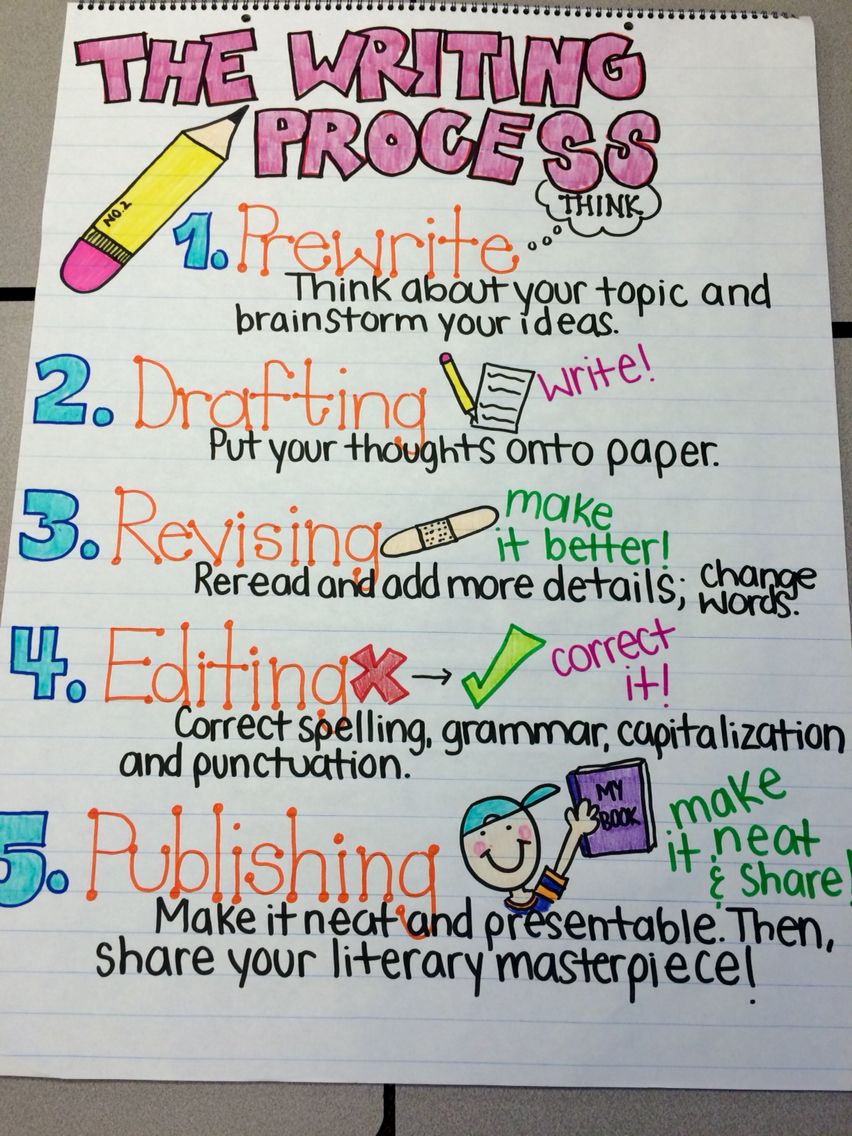 THE WRITING
PROCESS
NO. 2
THINK
1. Prewrite
Think about your topic and
brainstorm your ideas.
2. Drafting
write!
Put your thoughts onto paper.
3. Revising
make
it better!
Reread and add more details; change
words.
4. Editing
correct
it!
Correct spelling, grammar, capitalization
and punctuation.
5. Publishing
MY
BOOK
make
it neat
& share!
Make it neat and presentable. Then,
share your literary masterpiece!